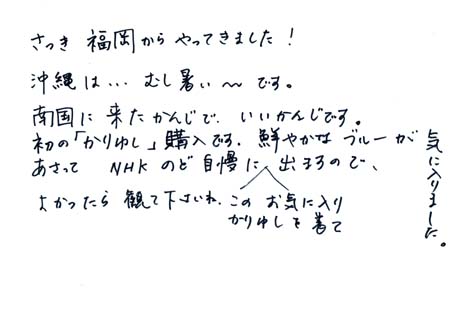 さっき 福岡から やってきました!
沖縄は… むし暑い〜です。
南国に 来た かんじで、いいかんじです。
初の「かりゆし」購入です。鮮やかな ブルーが
気に入りました。
あさって NHK のど自慢に、出ますので、
よかったら 観て下さいね。
この お気に入り
かりゆしを 着て